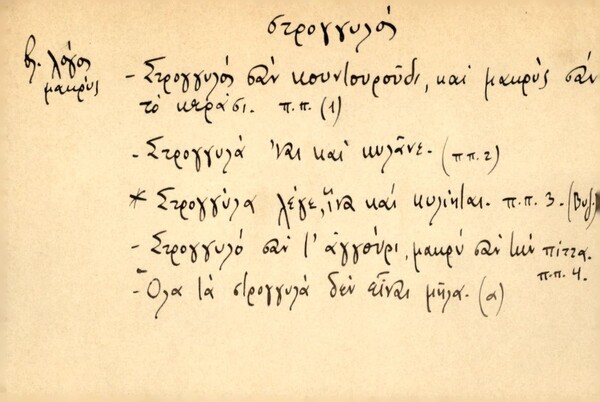 στρογγυλός
βλ. λόγος
μακρύς
- Στρογγυλός σὰν κουντουροῦδι, καὶ μακρὺς σὰν
τὸ κεράσι. π.π. (1)
- Στρογγυλά 'ναι καὶ κυλᾶνε. (π π. 2)
* Στρογγύλα λέγε, ἵνα καὶ κυλίηται. π.π. 3. (Βυζ.)
- Στρογγυλὸ σαν τ' ἀγγούρι, μακρὺ σαν τὴν πίττα.
π.π. 4.
- Ὅλα τὰ στρογγυλὰ δὲν εἶναι μῆλα. (α)